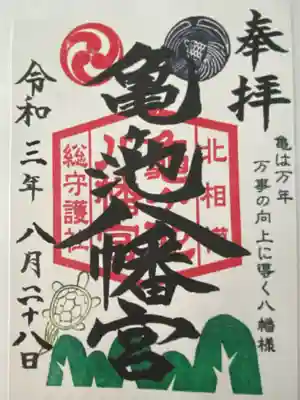 奉拝
亀は万年
万事の向上に導く八幡様
亀池八幡宮
北相模
総守護社
令和三年八月二十八日